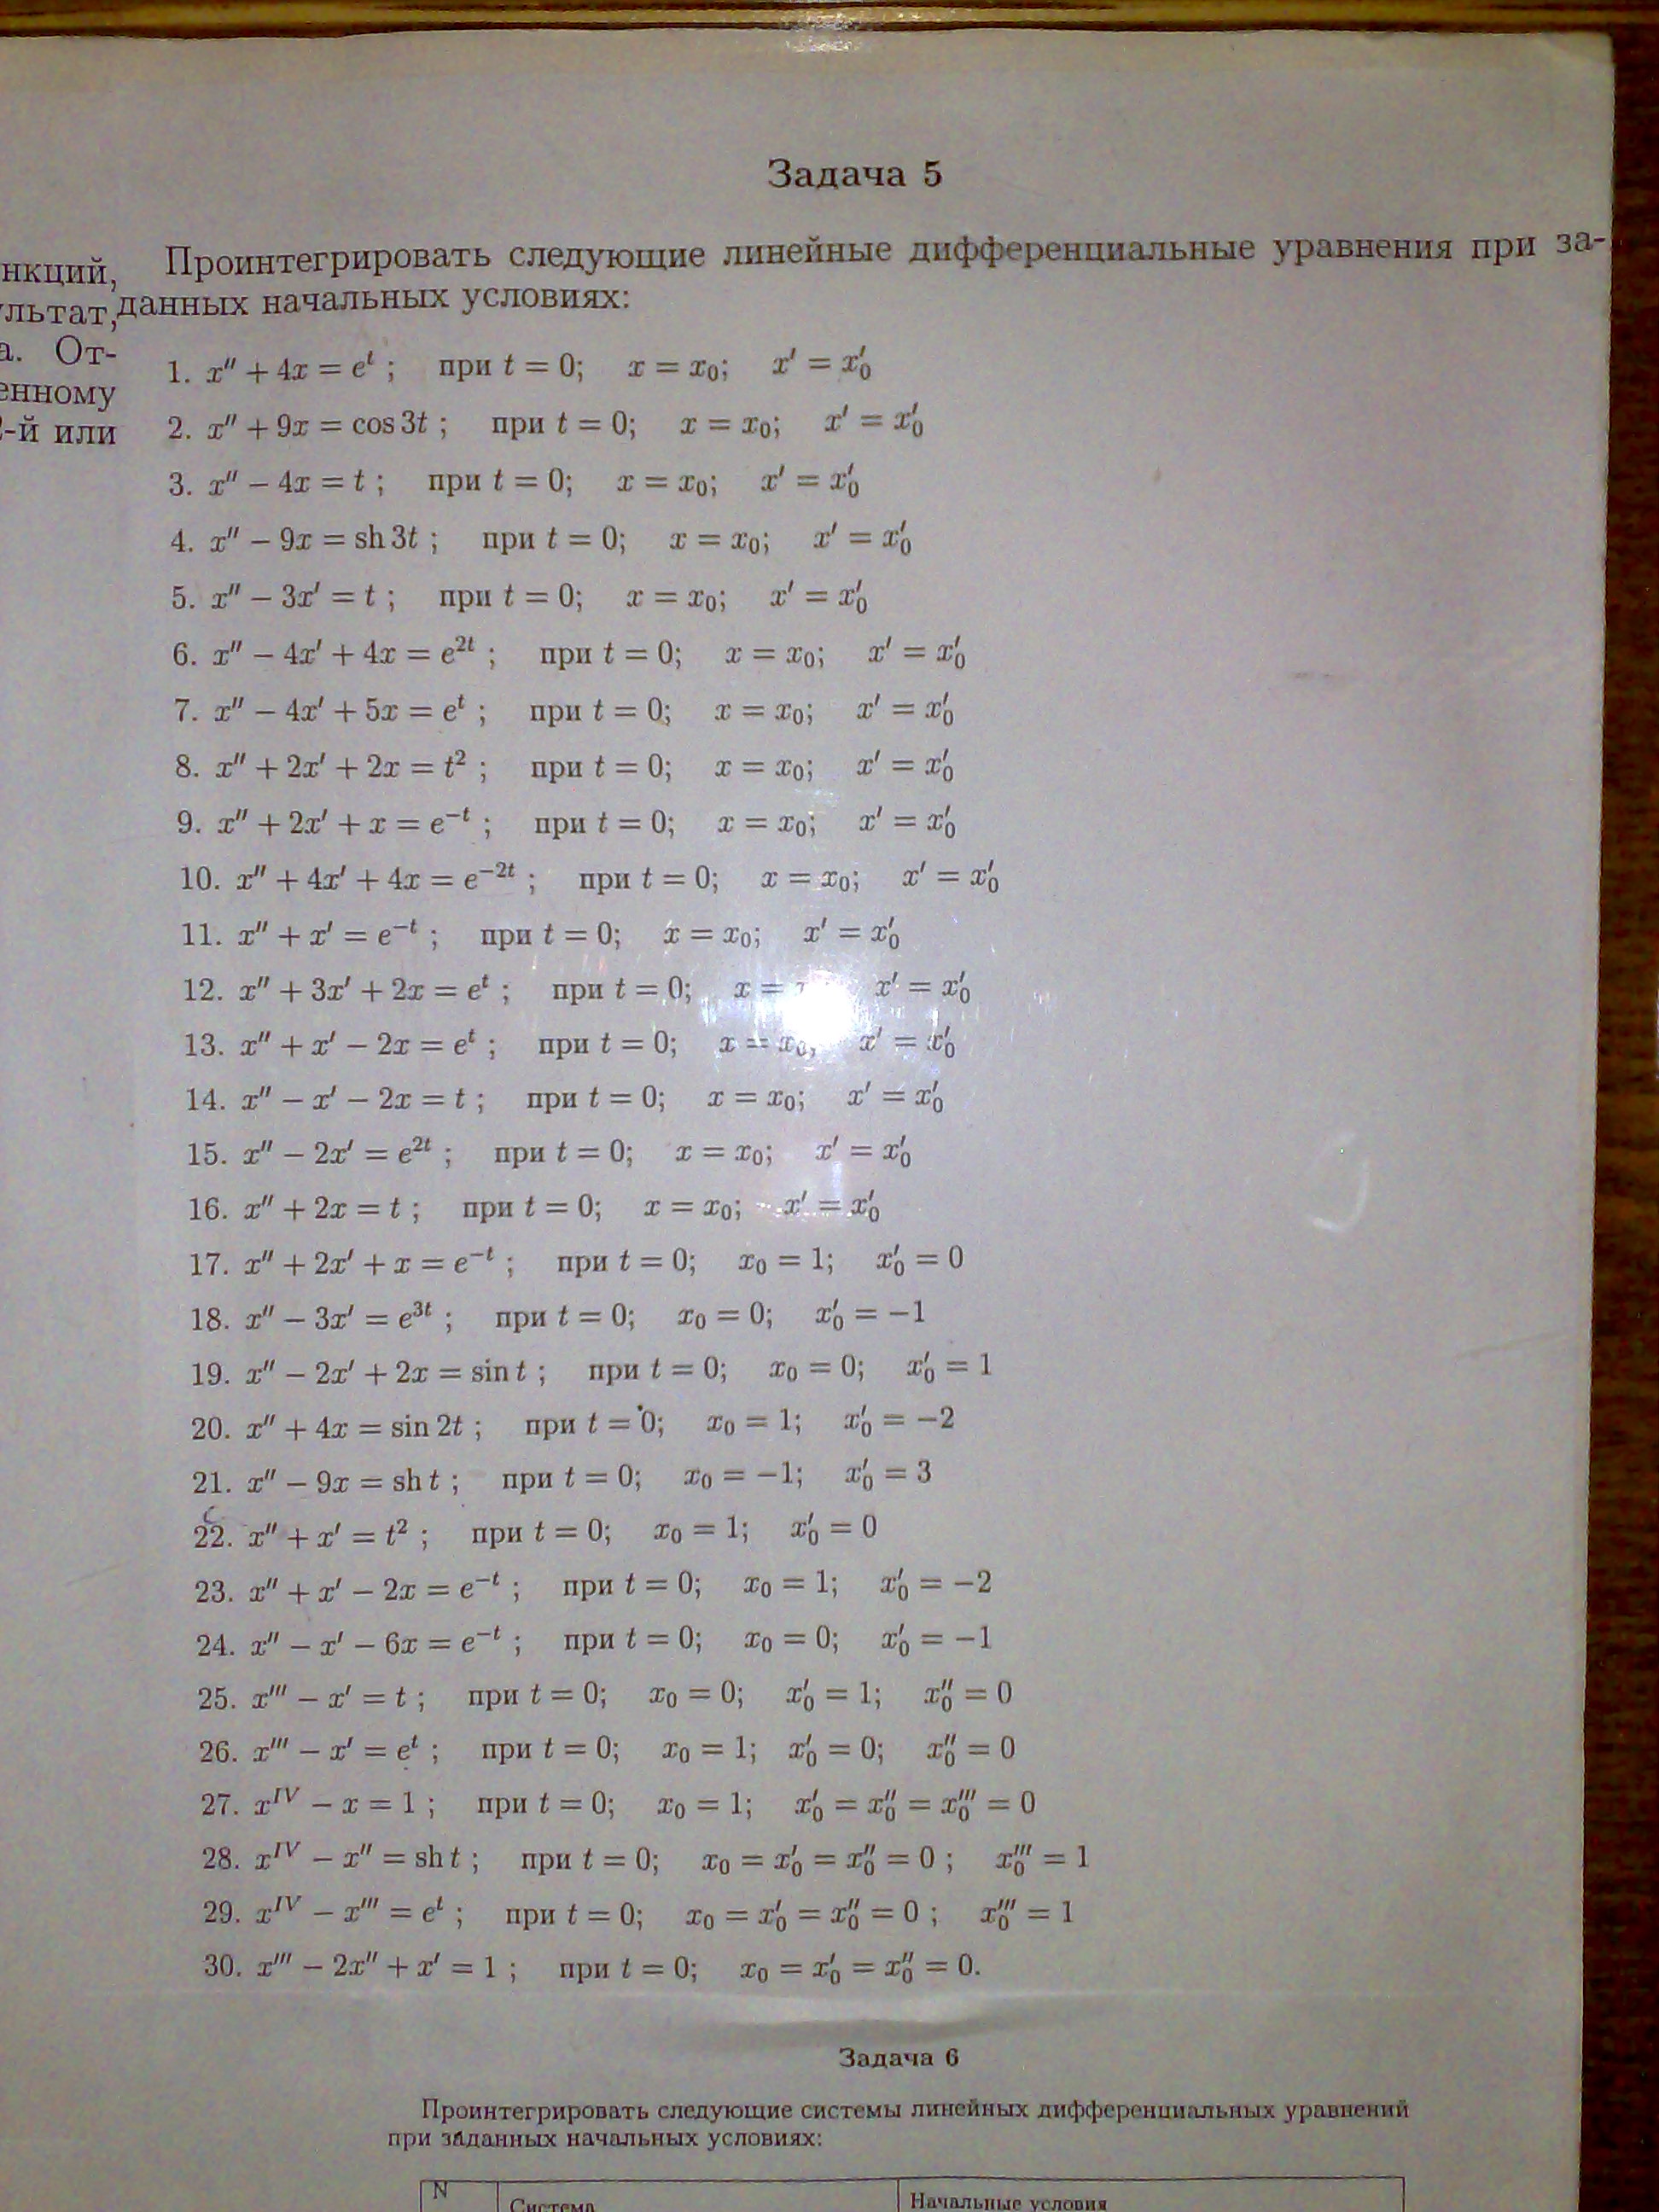 Задача 5
нкций,
Проинтегрировать следующие линейные дифференциальные уравнения при за-
льтат,
данных начальных условиях:
а. От-
енному
-й или
1. x″ + 4x = eᵗ ; при t = 0; x = x₀; x′ = x′₀
2. x″ + 9x = cos 3t ; при t = 0; x = x₀; x′ = x′₀
3. x″ − 4x = t ; при t = 0; x = x₀; x′ = x′₀
4. x″ − 9x = sh 3t ; при t = 0; x = x₀; x′ = x′₀
5. x″ − 3x′ = t ; при t = 0; x = x₀; x′ = x′₀
6. x″ − 4x′ + 4x = e²ᵗ ; при t = 0; x = x₀; x′ = x′₀
7. x″ − 4x′ + 5x = eᵗ ; при t = 0; x = x₀; x′ = x′₀
8. x″ + 2x′ + 2x = t² ; при t = 0; x = x₀; x′ = x′₀
9. x″ + 2x′ + x = e⁻ᵗ ; при t = 0; x = x₀; x′ = x′₀
10. x″ + 4x′ + 4x = e⁻²ᵗ ; при t = 0; x = x₀; x′ = x′₀
11. x″ + x′ = e⁻ᵗ ; при t = 0; x = x₀; x′ = x′₀
12. x″ + 3x′ + 2x = eᵗ ; при t = 0; x = x′ = x′₀
13. x″ + x′ − 2x = eᵗ ; при t = 0; x = x₀; x′ = x′₀
14. x″ − x′ − 2x = t ; при t = 0; x = x₀; x′ = x′₀
15. x″ − 2x′ = e²ᵗ ; при t = 0; x = x₀; x′ = x′₀
16. x″ + 2x = t ; при t = 0; x = x₀; x′ = x′₀
17. x″ + 2x′ + x = e⁻ᵗ ; при t = 0; x₀ = 1; x′₀ = 0
18. x″ − 3x′ = e³ᵗ ; при t = 0; x₀ = 0; x′₀ = −1
19. x″ − 2x′ + 2x = sin t ; при t = 0; x₀ = 0; x′₀ = 1
20. x″ + 4x = sin 2t ; при t = 0; x₀ = 1; x′₀ = −2
21. x″ − 9x = sh t ; при t = 0; x₀ = −1; x′₀ = 3
22. x″ + x′ = t² ; при t = 0; x₀ = 1; x′₀ = 0
23. x″ + x′ − 2x = e⁻ᵗ ; при t = 0; x₀ = 1; x′₀ = −2
24. x″ − x′ − 6x = e⁻ᵗ ; при t = 0; x₀ = 0; x′₀ = −1
25. x‴ − x′ = t ; при t = 0; x₀ = 0; x′₀ = 1; x″₀ = 0
26. x‴ − x′ = eᵗ ; при t = 0; x₀ = 1; x′₀ = 0; x″₀ = 0
27. xᴵⱽ − x = 1 ; при t = 0; x₀ = 1; x′₀ = x″₀ = x‴₀ = 0
28. xᴵⱽ − x″ = sh t ; при t = 0; x₀ = x′₀ = x″₀ = 0 ; x‴₀ = 1
29. xᴵⱽ − x‴ = eᵗ ; при t = 0; x₀ = x′₀ = x″₀ = 0 ; x‴₀ = 1
30. x‴ − 2x″ + x′ = 1 ; при t = 0; x₀ = x′₀ = x″₀ = 0.
Задача 6
Проинтегрировать следующие системы линейных дифференциальных уравнений
при заданных начальных условиях:
N Система Начальные условия